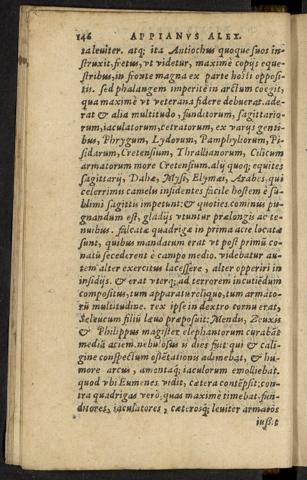 146 APPIANVS ALEX.
taleuiter. atq; ita Antiochus quoque suos in-
struxit, fretus, vt videtur, maximè copijs eque-
stribus, in fronte magna ex parte hosti opposi-
tis. sed phalangem imperitè in arctum coegit,
qua maximè vt veterana fidere debuerat. ade-
rat & alia multitudo, funditorum, sagittario-
rum, iaculatorum, cetratorum, ex varijs genti-
bus, Phrygum, Lydorum, Pamphyliorum, Pi-
sidarum, Cretensium, Thrallianorum, Cilicum
armatorum more Cretensium. alij quoq; equites
sagittarij, Dahæ, Mysi, Elymæi, Arabes. qui
celerrimis camelis insidentes facile hostem è su-
blimi sagittis impetunt: & quoties cominus pu-
gnandum est, gladijs vtuntur prælongis ac te-
nuibus. falcatæ quadrigæ in prima acie locatæ
sunt, quibus mandatum erat vt post primũ co-
natũ secederent è campo medio. videbatur au-
tem alter exercitus lacessere, alter opperiri in
insidijs. & erat vterq; ad terrorem incutiẽdum
compositus, tum apparatu reliquo, tum armato-
rũ multitudine. rex ipse in dextro cornu erat,
Seleucum filiũ læuo præposuit: Mendis, Zeuxis
& Philippus magister elephantorum curabãt
mediã aciem. nebulosus is dies fuit qui & cali-
gine conspectum ostẽtationis adimebat, & hu-
more arcus, amentaq; iaculorum emolliebat.
quod vbi Eumenes vidit, cætera contẽpsit: con-
tra quadrigas verò, quas maximè timebat, fun-
ditores, iaculatores, cæterosq; leuiter armatos
iuss.t